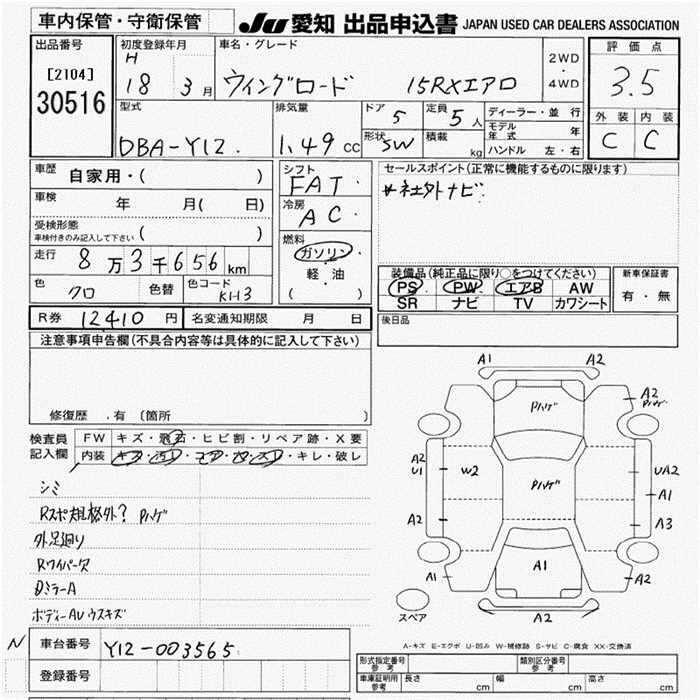 車内保管・守衛保管
JU 愛知 出品申込書 JAPAN USED CAR DEALERS ASSOCIATION
出品番号
[2104]
30516
初度登録年月
H
18 3 月
車名・グレード
ウイングロード 15RXエアロ
2WD
・
4WD
評価点
3.5
外装 内装
C C
型式
DBA-Y12.
排気量
1.49 CC
ドア
5
定員
5人
形状 SW
積載
kg
ディーラー・並行
モデル年式 年
ハンドル 左・右
車歴
自家用・( )
車検
年 月( 日)
受検形態
車検付きのみ記入して下さい ( )
走行
8万3千656km
色
クロ
色替
色コード
KH3
シフト
FAT.
冷房
AC.
燃料
ガソリン
・
軽油
( )
セールスポイント(正常に機能するものに限ります)
*社外ナビ.
装備品(純正品に限り○をつけてください)
PS PW エアB AW
SR ナビ TV カワシート
新車保証書
有・無
R券 12410 円
名変通知期限 月 日
後日品
注意事項申告欄(不具合内容等は具体的に記入して下さい)
修復歴.有〔箇所 〕
検査員
記入欄
FW キズ・飛石・ヒビ割・リペア跡・X要
内装 ・キレ・破レ
シミ
Rスポ規格外? Pハゲ
外足廻り
Rワイパー欠
DミラーA
ボディーAUウスキズ
A1 A2
Pハゲ
A2
Pハゲ
A2
U1
W2
Pハゲ
UA2
A1
A2
A3
A1
A1
A2
A2
スペア
A-キズ E-エクボ U-凹み W-補修跡 S-サビ C-腐食 XX-交換済
N
車台番号 Y12-003565
登録番号
形式指定番号
参考
類別区分番号
参考
車庫証明用
参考
長さ cm 幅 cm 高さ cm